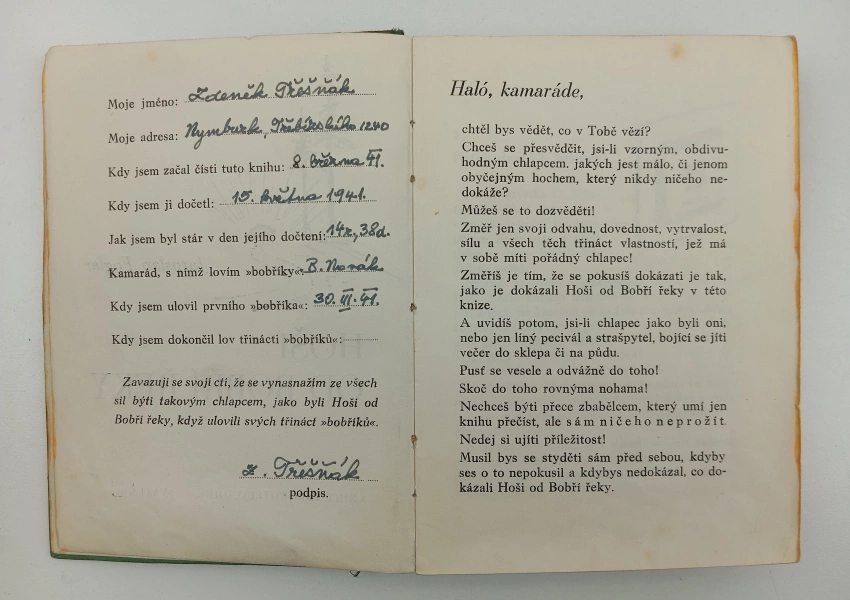 Moje jméno: Zdeněk Třešňák
Moje adresa: Nymburk, Třebízského 1240
Kdy jsem začal čísti tuto knihu: 8. března 41.
Kdy jsem ji dočetl: 15. května 1941.
Jak jsem byl stár v den jejího dočtení: 14 r., 38 d.
Kamarád, s nímž lovím »bobříky«: B. Novák
Kdy jsem ulovil prvního »bobříka«: 30. III. 41.
Kdy jsem dokončil lov třinácti »bobříků«:
Zavazuji se svojí ctí, že se vynasnažím ze všech
sil býti takovým chlapcem, jako byli Hoši od
Bobří řeky, když ulovili svých třináct »bobříků«.
Z. Třešňák
podpis.
Haló, kamaráde,
chtěl bys vědět, co v Tobě vězí?
Chceš se přesvědčit, jsi-li vzorným, obdivu-
hodným chlapcem. jakých jest málo, či jenom
obyčejným hochem, který nikdy ničeho ne-
dokáže?
Můžeš se to dozvěděti!
Změř jen svoji odvahu, dovednost, vytrvalost,
sílu a všech těch třináct vlastností, jež má
v sobě míti pořádný chlapec!
Změříš je tím, že se pokusíš dokázati je tak,
jako je dokázali Hoši od Bobří řeky v této
knize.
A uvidíš potom, jsi-li chlapec jako byli oni,
nebo jen líný pecivál a strašpytel, bojící se jíti
večer do sklepa či na půdu.
Pusť se vesele a odvážně do toho!
Skoč do toho rovnýma nohama!
Nechceš býti přece zbabělcem, který umí jen
knihu přečíst, ale sám ničeho neprožít.
Nedej si ujíti příležitost!
Musil bys se styděti sám před sebou, kdyby
ses o to nepokusil a kdybys nedokázal, co do-
kázali Hoši od Bobří řeky.